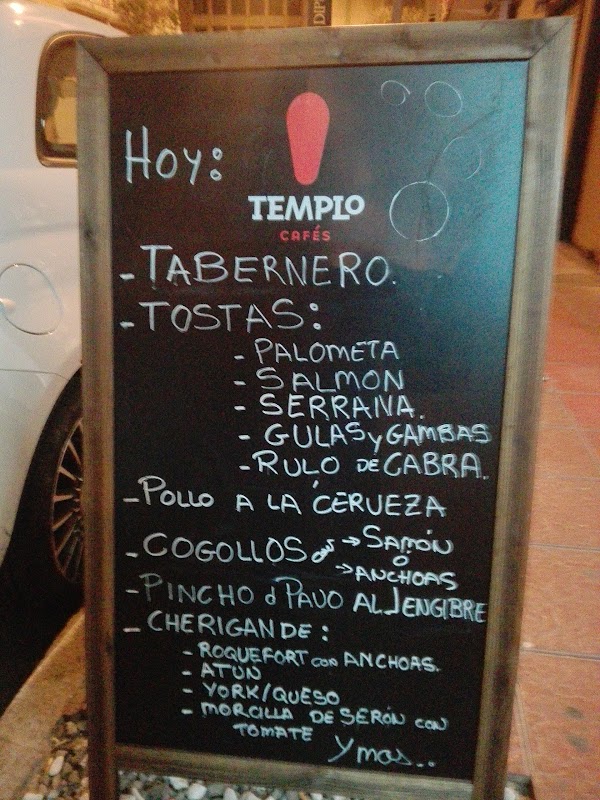 Hoy:
TEMPLO
CAFÉS
- TABERNERO.
- TOSTAS:
- PALOMETA
- SALMON
- SERRANA.
- GULAS y GAMBAS
- RULO DE CABRA.
- POLLO A LA CERVEZA
- COGOLLOS con → SAMÓN
ó
→ ANCHOAS
- PINCHO d PAVO AL JENGIBRE
- CHERIGANDE:
- ROQUEFORT con ANCHOAS.
- ATUN
- YORK/QUESO
- MORCILLA DE SERÓN CON
TOMATE
y mas...